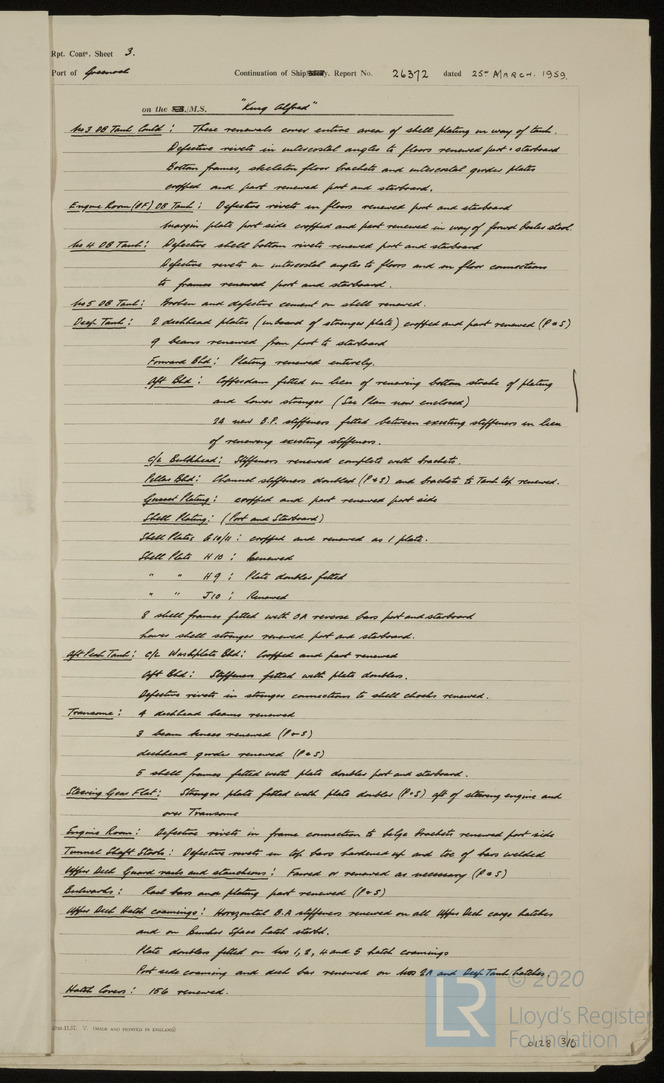 Rpt. Contn. Sheet 3.
Port of Greenock Continuation of Ship Report No. 26372 dated 25th MARCH. 1959.
on the M.S. "King Alfred"
No 3 DB Tank Contd : These renewals cover entire area of shell plating in way of tank.
Defective rivets in intercostal angles to floors renewed port & starboard
Bottom frames, skeleton floor brackets and intercostal girder plates
cropped and part renewed port and starboard.
Engine Room (OF) DB Tank : Defective rivets in floors renewed port and starboard
Margin plate port side cropped and part renewed in way of forwd boiler stool.
No 4 DB Tank : Defective shell bottom rivets renewed port and starboard
Defective rivets in intercostal angles to floors and in floor connections
to frames renewed port and starboard.
No 5 DB Tank : Broken and defective cement on shell renewed.
Deep Tank : 2 deckhead plates (inboard of stringer plate) cropped and part renewed (P & S)
9 beams renewed from port to starboard
Forward Bhd : Plating renewed entirely.
Aft Bhd : Cofferdam fitted in lieu of renewing bottom strake of plating
and lower stringer (See Plan now enclosed)
24 new B.P. stiffeners fitted between existing stiffeners in lieu
of renewing existing stiffeners.
C/L Bulkhead : Stiffeners renewed complete with brackets.
Pillar Bhd : Channel stiffeners doubled (P & S) and brackets to Tank top renewed.
Gusset Plating : cropped and part renewed port side
Shell Plating : (Port and Starboard)
Shell Plates G 10/11 : cropped and renewed as 1 plate.
Shell Plate H 10 : Renewed
" " H 9 : Plate doubler fitted
" " J 10 : Renewed
8 shell frames fitted with OA reverse bars port and starboard
Lower shell stringer renewed port and starboard.
Aft Peak Tank : C/L Washplate Bhd : Cropped and part renewed
Aft Bhd : Stiffeners fitted with plate doublers.
Defective rivets in stringer connections to shell chocks renewed.
Transome : 4 deckhead beams renewed
3 beam knees renewed (P & S)
deckhead girder renewed (P & S)
5 shell frames fitted with plate doubler port and starboard.
Steering Gear Flat : Stringer plate fitted with plate doubler (P & S) aft of steering engine and
over Transome
Engine Room : Defective rivets in frame connection to bilge brackets renewed port side
Tunnel Shaft Stools : Defective rivets in top bars hardened up and toe of bars welded
Upper Deck Guard rails and stanchions : Faired or renewed as necessary (P & S)
Bulwarks : Rail bars and plating part renewed (P & S)
Upper Deck Hatch coamings : Horizontal B.A stiffeners renewed on all Upper Deck cargo hatches
and on Bunker Space hatch starbd.
Plate doublers fitted on Nos 1, 2, 4 and 5 hatch coamings
Port side coaming and deck bar renewed on Nos 2A and Deep Tank hatches.
Hatch Covers : 156 renewed.
(MADE AND PRINTED IN ENGLAND)
© 2020
LR
Lloyd's Register
Foundation
0128 3/6